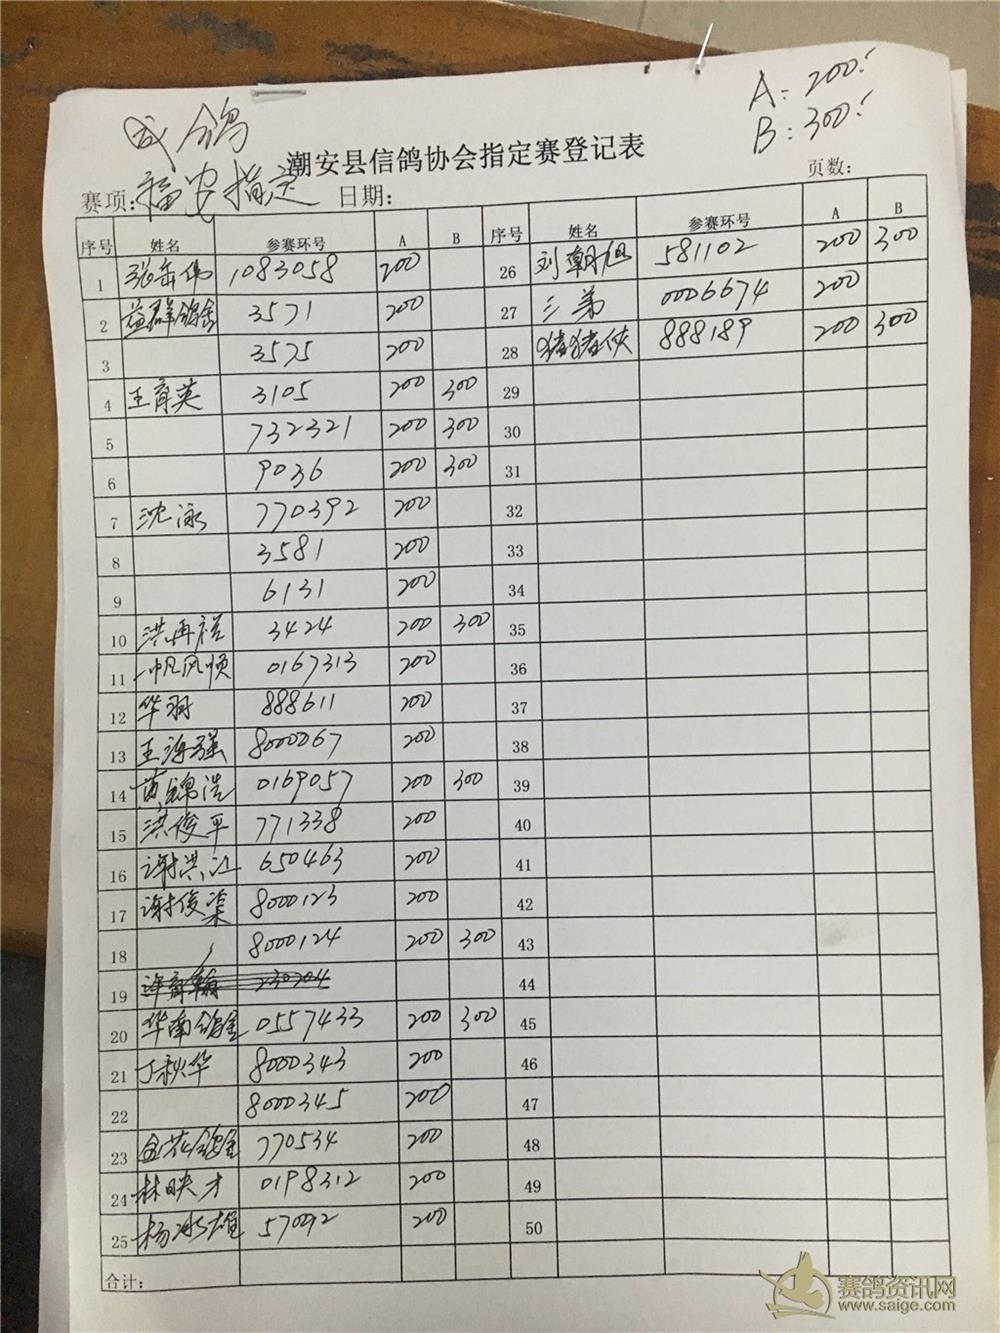 成鸽
A: 200.
B: 300.
潮安县信鸽协会指定赛登记表
赛项: 福安指定 日期: 页数:
序号 姓名 参赛环号 A B 序号 姓名 参赛环号 A B
1 张岳伟 1083058 200 26 刘朝旭 581102 200 300
2 益群鸽舍 3571 200 27 三弟 0006674 200
3 3575 200 28 猪猪侠 888189 200 300
4 王育英 3105 200 300 29
5 732321 200 300 30
6 9036 200 300 31
7 沈泳 770392 200 32
8 3581 200 33
9 6131 200 34
10 洪再裕 3424 200 300 35
11 一帆风顺 0167313 200 36
12 华羽 888611 200 37
13 王海强 8000067 200 38
14 黄锦浩 0169057 200 300 39
15 洪俊平 771338 200 40
16 谢洪江 650463 200 41
17 谢俊渠 8000123 200 42
18 8000124 200 300 43
19 许育翰 230204 44
20 华南鸽舍 0557433 200 300 45
21 丁秋华 8000343 200 46
22 8000345 200 47
23 金花鸽舍 770534 200 48
24 林映才 0198312 200 49
25 杨冰雄 57092 200 50
合计:
赛鸽资讯网
www.saige.com